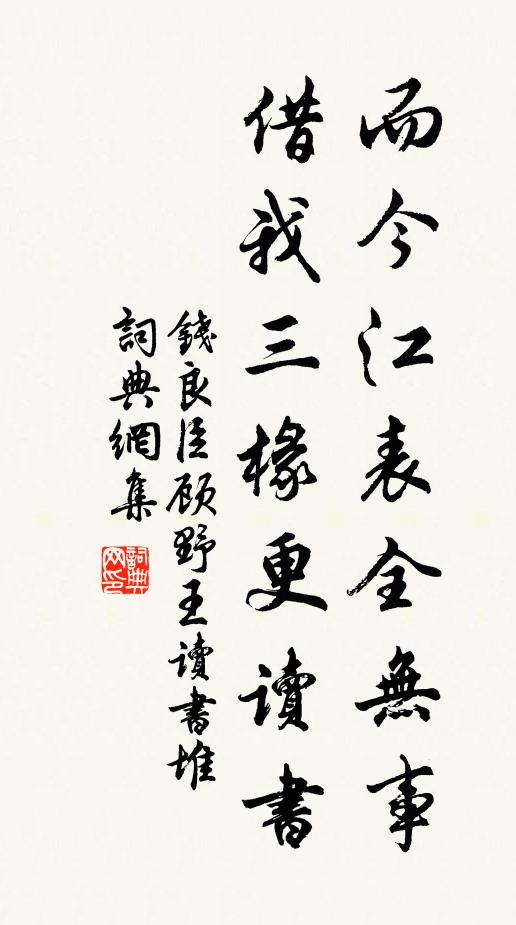 而今江表全無事
借我三椽更讀書
錢良臣顾野王讀書堆
詞典網集
詞典网印